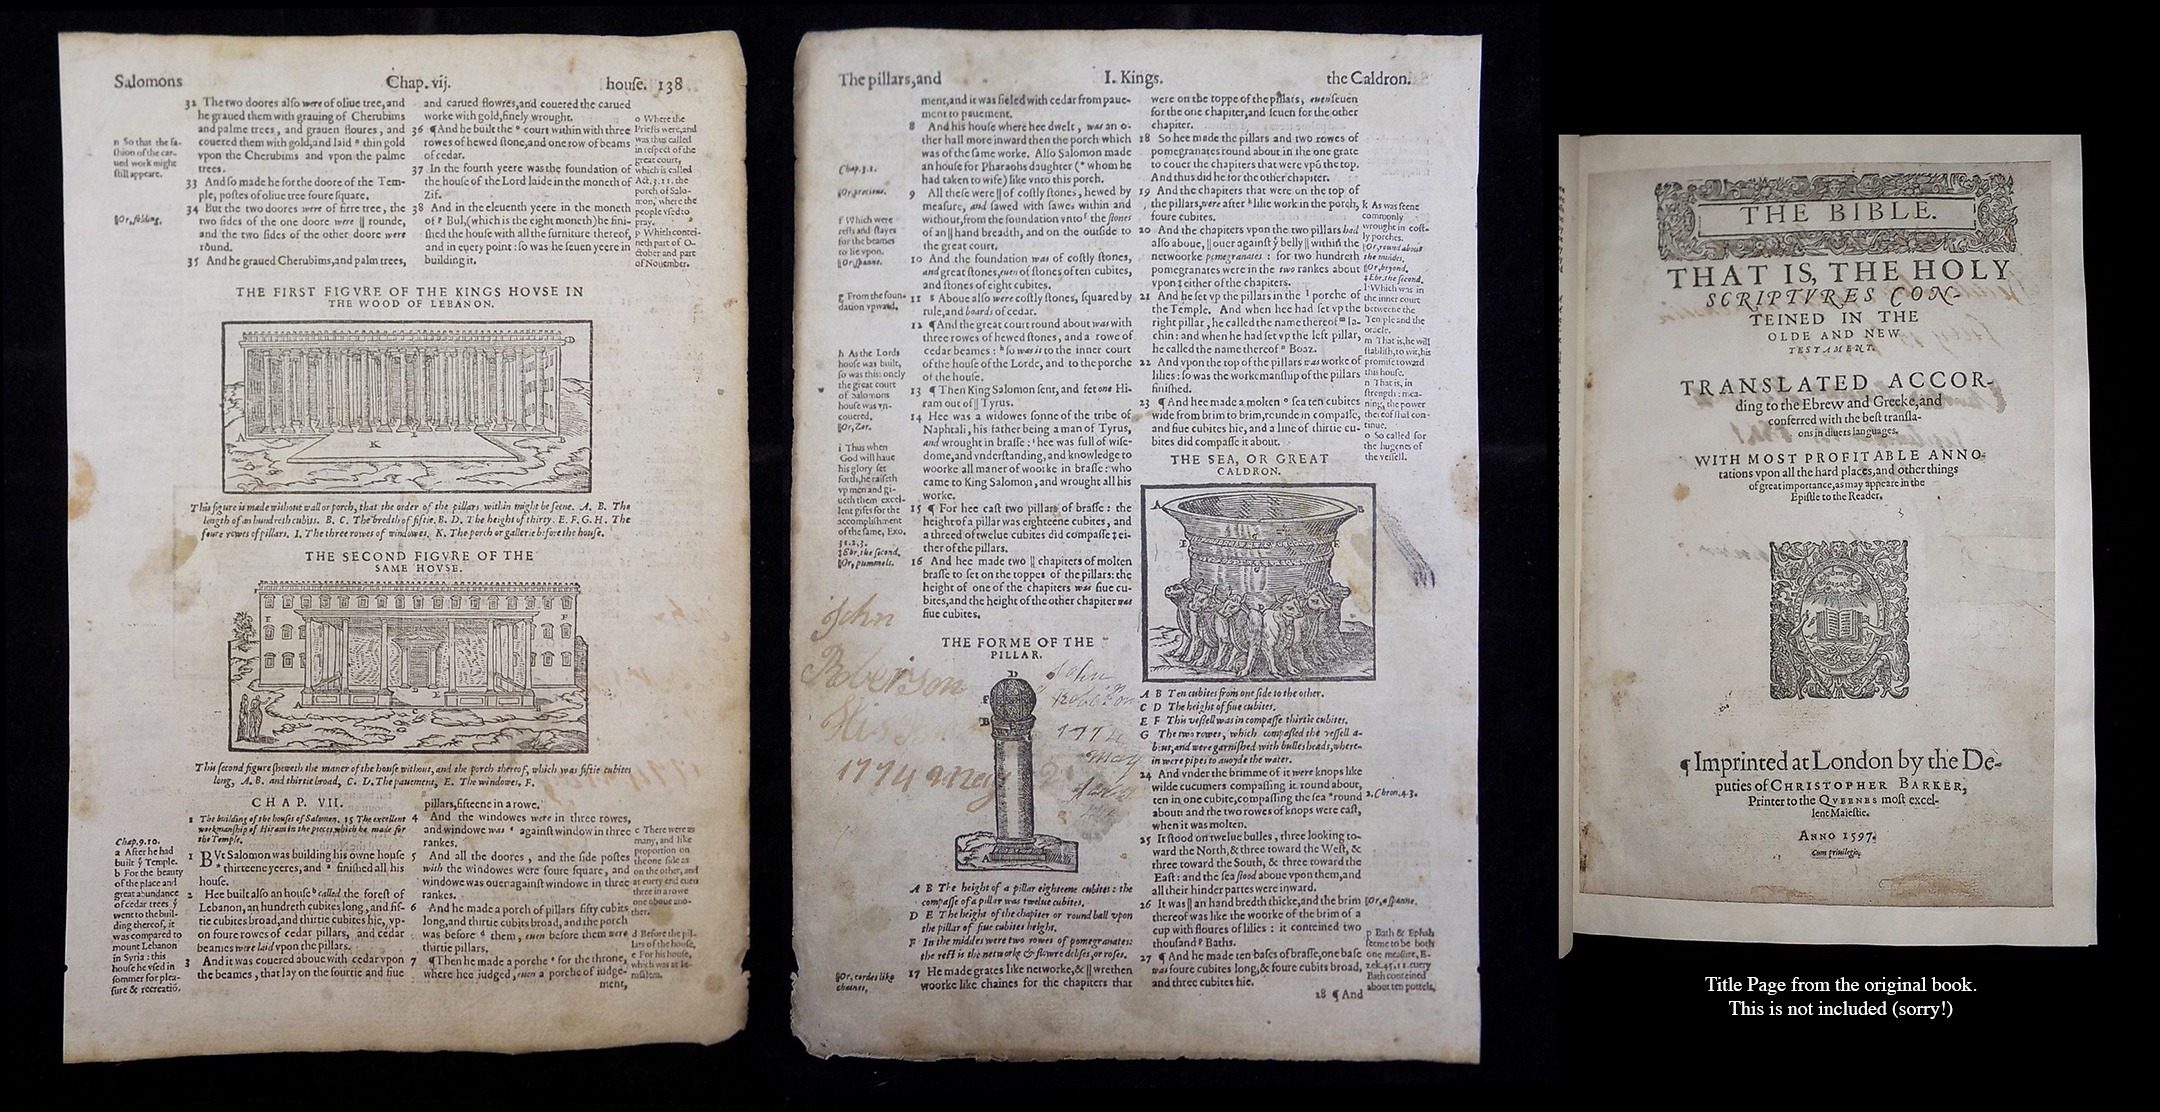 Salomons Chap. vij. houſe. 138
32 The two doores alſo were of oliue tree, and
he graued them with grauing of Cherubims
and palme trees, and grauen floures, and
couered them with gold, and laid n thin gold
vpon the Cherubims and vpon the palme
trees.
33 And ſo made he for the doore of the Tem-
ple, poſtes of oliue tree foure ſquare.
34 But the two doores were of firre tree, the
two ſides of the one doore were || rounde,
and the two ſides of the other doore were
round.
35 And he graued Cherubims, and palm trees,
n So that the fa-
ſhion of the car-
ued work might
ſtill appeare.
||Or, folding.
and carued flowres, and couered the carued
worke with gold, finely wrought.
36 ¶And he built the o court within with three
rowes of hewed ſtone, and one row of beams
of cedar.
37 In the fourth yeere was the foundation of
the houſe of the Lord laide in the moneth of
Zif.
38 And in the eleuenth yeere in the moneth
of p Bul, (which is the eight moneth) he fini-
ſhed the houſe with all the furniture thereof,
and in euery point: ſo was he ſeuen yeere in
building it.
o Where the
Prieſts were, and
was thus called
in reſpect of the
great court,
which is called
Act. 3. 11. the
porch of Salo-
mon, where the
people vſed to
pray.
p Which contei-
neth part of O-
ctober and part
of Nouember.
THE FIRST FIGVRE OF THE KINGS HOVSE IN
THE WOOD OF LEBANON.
A K B
This figure is made without wall or porch, that the order of the pillars within might be ſeene. A. B. The
length of an hundreth cubits. B. C. The bredth of fiftie. B. D. The height of thirty. E. F. G. H. The
foure rowes of pillars. I. The three rowes of windowes. K. The porch or gallerie before the houſe.
THE SECOND FIGVRE OF THE
SAME HOVSE.
This ſecond figure ſheweth the maner of the houſe without, and the porch thereof, which was fiftie cubites
long, A. B. and thirtie broad, C. D. The pauement, E. The windowes. F.
CHAP. VII.
1 The building of the houſes of Salomon. 15 The excellent
workmanſhip of Hiram in the pieces which he made for
the Temple.
1 BVt Salomon was building his owne houſe
* thirteene yeeres, and a finiſhed all his
houſe.
2 Hee built alſo an houſe b called the foreſt of
Lebanon, an hundreth cubites long, and fif-
tie cubites broad, and thirtie cubites hie, vp-
on foure rowes of cedar pillars, and cedar
beames were laid vpon the pillars.
3 And it was couered aboue with cedar vpon
the beames, that lay on the fourtie and fiue
Chap. 9. 10.
a After he had
built ÿ Temple.
b For the beauty
of the place and
great abundance
of cedar trees ÿ
went to the buil-
ding thereof, it
was compared to
mount Lebanon
in Syria: this
houſe he vſed in
ſommer for plea-
ſure & recreatiō.
pillars, fifteene in a rowe.
4 And the windowes were in three rowes,
and windowe was c againſt window in three
rankes.
5 And all the doores, and the ſide poſtes
with the windowes were foure ſquare, and
windowe was ouer againſt windowe in three
rankes.
6 And he made a porch of pillars fifty cubits
long, and thirtie cubits broad, and the porch
was before d them, euen before them were
thirtie pillars.
7 ¶Then he made a porche e for the throne,
where hee iudged, euen a porche of iudge-
ment,
c There were as
many, and like
proportion on
the one ſide as
on the other, and
at euery end euen
three in a rowe
one aboue ano-
ther.
d Before the pil-
lars of the houſe,
e For his houſe,
which was at Ie-
ruſalem.
The pillars, and I. Kings. the Caldron.
ment, and it was ſieled with cedar from paue-
ment to pauement.
8 And his houſe where hee dwelt, was an o-
ther hall more inward then the porch which
was of the ſame worke. Alſo Salomon made
an houſe for Pharaohs daughter (* whom he
had taken to wife) like vnto this porch.
9 All theſe were || of coſtly ſtones, hewed by
meaſure, and ſawed with ſawes within and
without, from the foundation vnto f the ſtones
of an || hand breadth, and on the outſide to
the great court.
10 And the foundation was of coſtly ſtones,
and great ſtones, euen of ſtones of ten cubites,
and ſtones of eight cubites.
11 g Aboue alſo were coſtly ſtones, ſquared by
rule, and boards of cedar.
12 ¶And the great court round about was with
three rowes of hewed ſtones, and a rowe of
cedar beames: h ſo was it to the inner court
of the houſe of the Lorde, and to the porche
of the houſe.
13 ¶ Then King Salomon ſent, and fet one Hi-
ram out of || Tyrus.
14 Hee was a widowes ſonne of the tribe of
Naphtali, his father being a man of Tyrus,
and wrought in braſſe: i hee was full of wiſe-
dome, and vnderſtanding, and knowledge to
woorke all maner of woorke in braſſe: who
came to King Salomon, and wrought all his
worke.
15 ¶ For hee caſt two pillars of braſſe: the
height of a pillar was eighteene cubites, and
a threed of twelue cubites did compaſſe ‡ ei-
ther of the pillars.
16 And hee made two || chapiters of molten
braſſe to ſet on the toppes of the pillars: the
height of one of the chapiters was fiue cu-
bites, and the height of the other chapiter was
fiue cubites.
Chap. 3. 1.
||Or, precious.
f Which were
reſts and ſtayes
for the beames
to lie vpon.
||Or, ſpanne.
g From the foun-
dation vpward.
h As the Lords
houſe was built,
ſo was this: onely
the great court
of Salomons
houſe was vn-
couered,
||Or, Zor.
i Thus when
God will haue
his glory ſet
forth, he raiſeth
vp men and gi-
ueth them excel-
lent gifts for the
accompliſhment
of the ſame, Exo.
31. 2, 3.
‡ Ebr. the ſecond.
||Or, pummels.
John
Roberson
His
1774 May
John
Roberson
1774
May
THE FORME OF THE
PILLAR.
D
F
B
A
A B The height of a pillar eighteene cubites: the
compaſſe of a pillar was twelue cubites.
D E The height of the chapiter or round ball vpon
the pillar of fiue cubites height.
F In the middes were two rowes of pomegranates:
the reſt is the networke & flowre deliſes, or roſes.
17 He made grates like networke, & || wrethen
woorke like chaines for the chapiters that
||Or, cordes like
chaines,
were on the toppe of the pillars, euen ſeuen
for the one chapiter, and ſeuen for the other
chapiter.
18 So hee made the pillars and two rowes of
pomegranates round about in the one grate
to couer the chapiters that were vpō the top.
And thus did he for the other chapiter.
19 And the chapiters that were on the top of
the pillars, were after k lilie work in the porch,
foure cubites.
20 And the chapiters vpon the two pillars had
alſo aboue, || ouer againſt ÿ belly || within the
networke pomegranates: for two hundreth
pomegranates were in the two rankes about
vpon ‡ either of the chapiters.
21 And he ſet vp the pillars in the l porche of
the Temple. And when hee had ſet vp the
right pillar, he called the name thereof m Ia-
chin: and when he had ſet vp the left pillar,
he called the name thereof n Boaz.
22 And vpon the top of the pillars was worke of
lilies: ſo was the workemanſhip of the pillars
finiſhed.
23 ¶And hee made a molten o ſea ten cubites
wide from brim to brim, rounde in compaſſe,
and fiue cubites hie, and a line of thirtie cu-
bites did compaſſe it about.
k As was ſeene
commonly
wrought in coſt-
ly porches.
||Or, round about
the middes.
||Or, beyond.
‡ Ebr. the ſecond.
l Which was in
the inner court
betweene the
Temple and the
oracle.
m That is, he will
ſtabliſh, to wit, his
promiſe toward
this houſe.
n That is, in
ſtrength: mea-
ning, the power
thereof ſhal con-
tinue.
o So called for
the hugenes of
the veſſell.
THE SEA, OR GREAT
CALDRON.
A B
E F
A B Ten cubites from one ſide to the other.
C D The height of fiue cubites.
E F This veſſell was in compaſſe thirtie cubites.
G The two rowes, which compaſſed the veſſell a-
bout, and were garniſhed with bulles heads, where-
in were pipes to auoyde the water.
24 And vnder the brimme of it were knops like
wilde cucumers compaſſing it round about,
ten in one cubite, compaſſing the ſea * round
about: and the two rowes of knops were caſt,
when it was molten.
25 It ſtood on twelue bulles, three looking to-
ward the North, & three toward the Weſt, &
three toward the South, & three toward the
Eaſt: and the ſea ſtood aboue vpon them, and
all their hinder partes were inward.
26 It was || an hand breadth thicke, and the brim
thereof was like the woorke of the brim of a
cup with floures of lilies: it conteined two
thouſand p Baths.
27 ¶ And he made ten baſes of braſſe, one baſe
was foure cubites long, & foure cubits broad,
and three cubites hie.
28 ¶ And
2. Chron. 4. 3.
||Or, a ſpanne.
p Bath & Ephah
ſeeme to be both
one meaſure, E-
zek. 45. 11. euery
Bath conteined
about ten pottels.
THE BIBLE.
THAT IS, THE HOLY
SCRIPTVRES CON-
TEINED IN THE
OLDE AND NEW
TESTAMENT.
TRANSLATED ACCOR-
ding to the Ebrew and Greeke, and
conferred with the beſt tranſla-
ons in diuers languages.
WITH MOST PROFITABLE ANNO-
tations vpon all the hard places, and other things
of great importance, as may appeare in the
Epiſtle to the Reader.
¶ Imprinted at London by the De-
puties of CHRISTOPHER BARKER,
Printer to the QVEENES moſt excel-
lent Maieſtie.
ANNO 1597.
Cum priuilegio.
Title Page from the original book.
This is not included (sorry!)